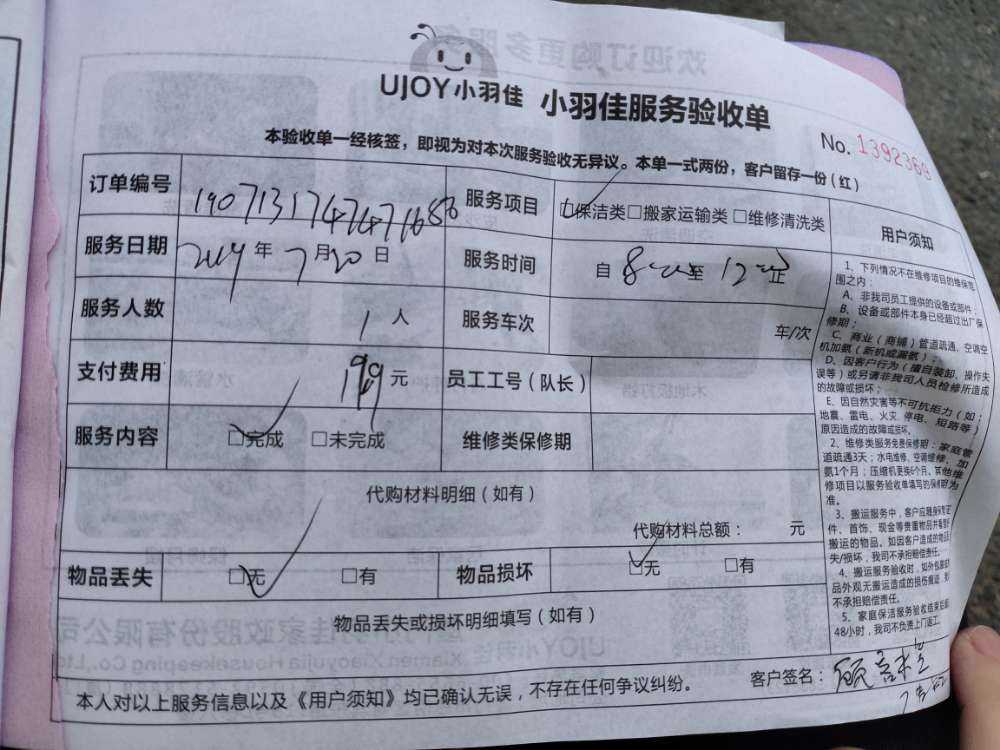 UJOY小羽佳 小羽佳服务验收单
No. 1392369
本验收单一经核签，即视为对本次服务验收无异议。本单一式两份，客户留存一份（红）
订单编号 服务项目 □保洁类□搬家运输类 □维修清洗类
服务日期 2019年7月20日 服务时间 自8:00至12:00止
服务人数 1人 服务车次 车/次
支付费用 199元 员工工号（队长）
服务内容 □完成 □未完成 维修类保修期
代购材料明细（如有）
代购材料总额： 元
物品丢失 □无 □有 物品损坏 □无 □有
物品丢失或损坏明细填写（如有）
本人对以上服务信息以及《用户须知》均已确认无误，不存在任何争议纠纷。 客户签名：
用户须知
1、下列情况不在维修项目的维保范
围之内：
A、非我司员工提供的设备或部件；
B、设备或部件本身已经超过出厂保
修期；
C、商业（商铺）管道疏通、空调空
机加氨（新机或漏氨）；
D、因客户行为（擅自装卸、操作失
误等）或另请非我司人员检修所造成
的故障或损坏；
E、因自然灾害等不可抗拒力（如：
地震、雷电、火灾 停电、短路等）
原因造成的故障或损坏。
2、维修类服务免费保修期：家庭管
道疏通3天；水电维修、空调维修、加
氨1个月；压缩机更换6个月。其他维
修项目以服务验收单填写的保修期为
准。
3、搬运服务中，客户应随身保管证
件、首饰、现金等贵重物品并看管好
搬运的物品。如因客户造成的物品丢
失/损坏，我司不承担赔偿责任。
4、搬运服务验收时，如外包装或
品外观无搬运造成的损伤痕迹，我
不承担赔偿责任。
5、家庭保洁服务验收结束后超
48小时，我司不负责上门返工。